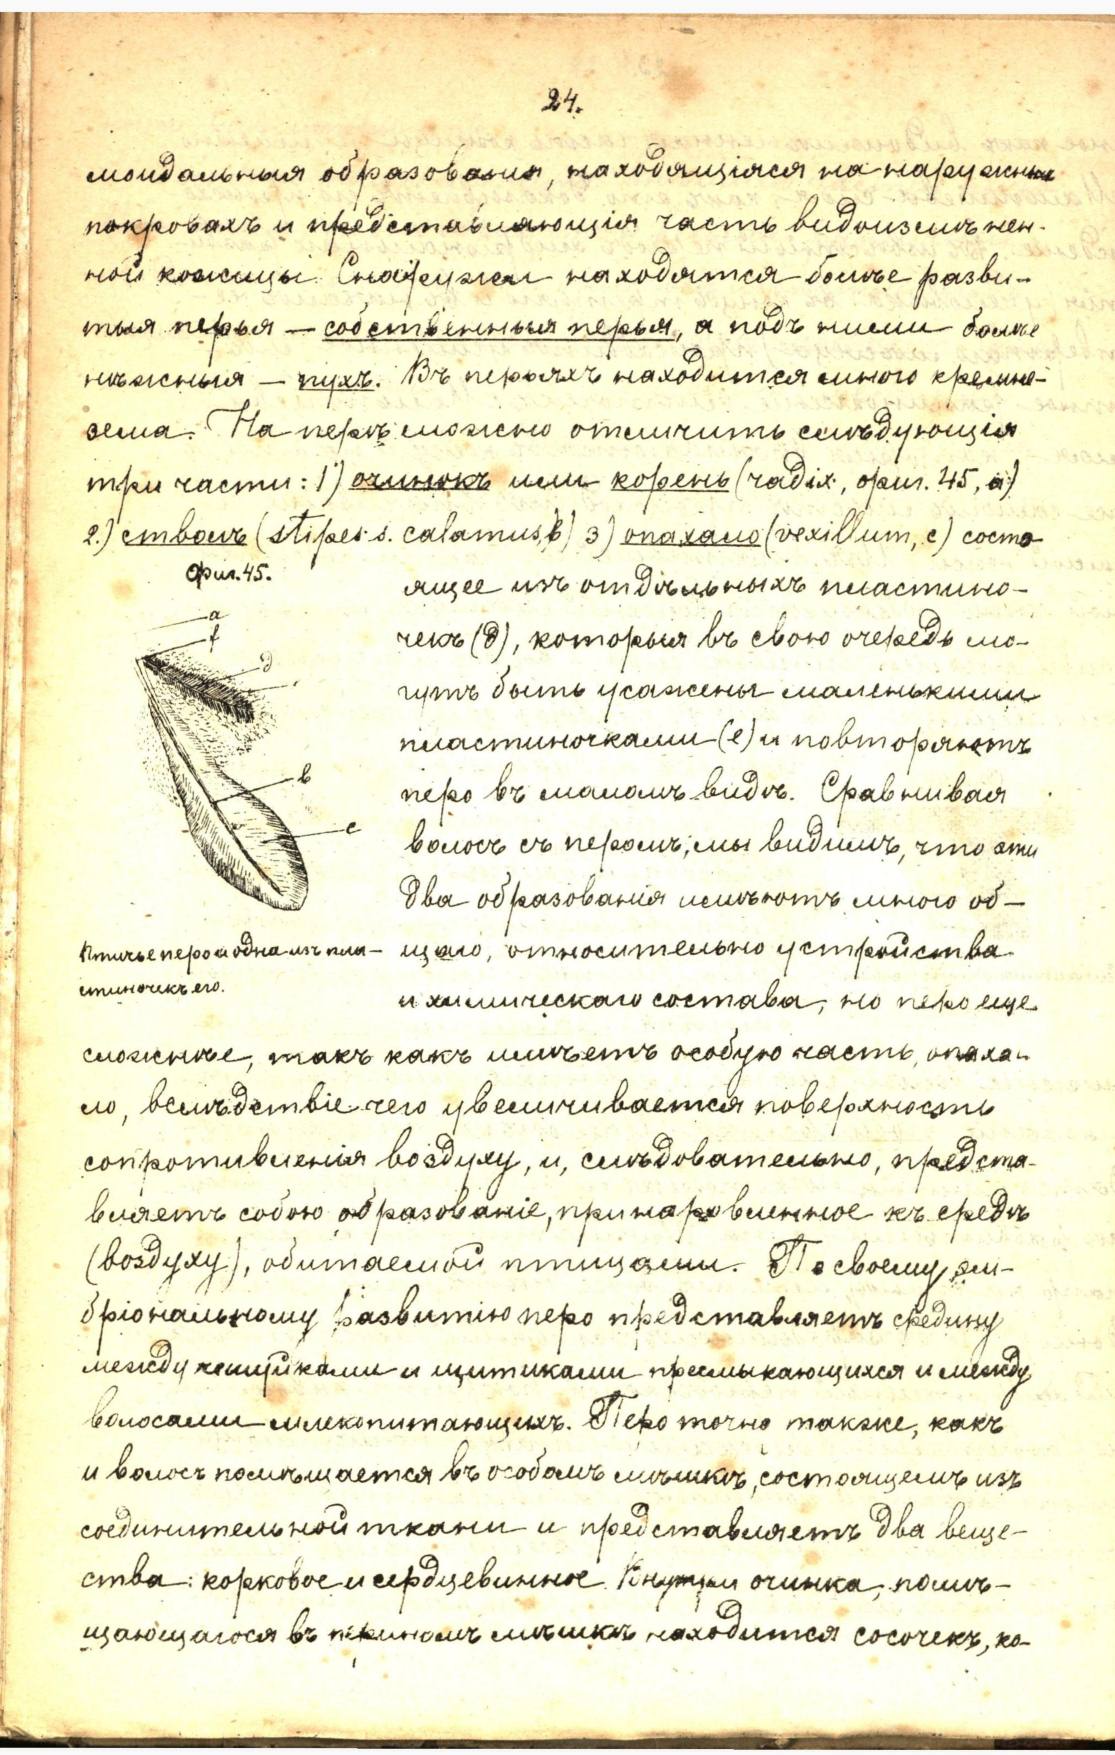 24.
моидальныя образования, находящіяся на наружных
покровахъ и представляющія часть видоизмѣнен-
ной кожицы. Снаружи находятся болѣе разви-
тыя перья — собственныя перья, а подъ ними болѣе
нѣжныя — пухъ. Въ перьяхъ находится много кремне-
зема. На перѣ можно отличить слѣдующія
три части: 1) очинокъ или корень (radix, фиг. 45, a)
2.) стволъ (stipes s. calamus, b) 3) опахало (vexillum, c) состо-
фиг. 45.
ящее изъ отдѣльныхъ пластино-
чекъ (d), которыя въ свою очередь мо-
гутъ быть усажены маленькими
пластиночками (e) и повторяютъ
перо въ маломъ видѣ. Сравнивая
волосъ съ перомъ, мы видимъ, что эти
два образованія имѣютъ много об-
щаго, относительно устройства
и химическаго состава, но перо еще
a
f
d
b
c
Птичье перо и одна изъ пла-
стиночекъ его.
сложнѣе, такъ какъ имѣетъ особую часть, опаха-
ло, вслѣдствіе чего увеличивается поверхность
сопротивленія воздуху, и, слѣдовательно, предста-
вляетъ собою образованіе, приноровленное къ средѣ
(воздуху), обитаемой птицами. По своему эм-
бріональному развитію перо представляетъ средину
между чешуйками и щитиками пресмыкающихся и между
волосами млекопитающихъ. Перо точно также, какъ
и волосъ помѣщается въ особомъ мѣшкѣ, состоящемъ изъ
соединительной ткани и представляетъ два веще-
ства: корковое и сердцевинное. Кнутри очинка, помѣ-
щающагося въ перяномъ мѣшкѣ находится сосочекъ, ко-